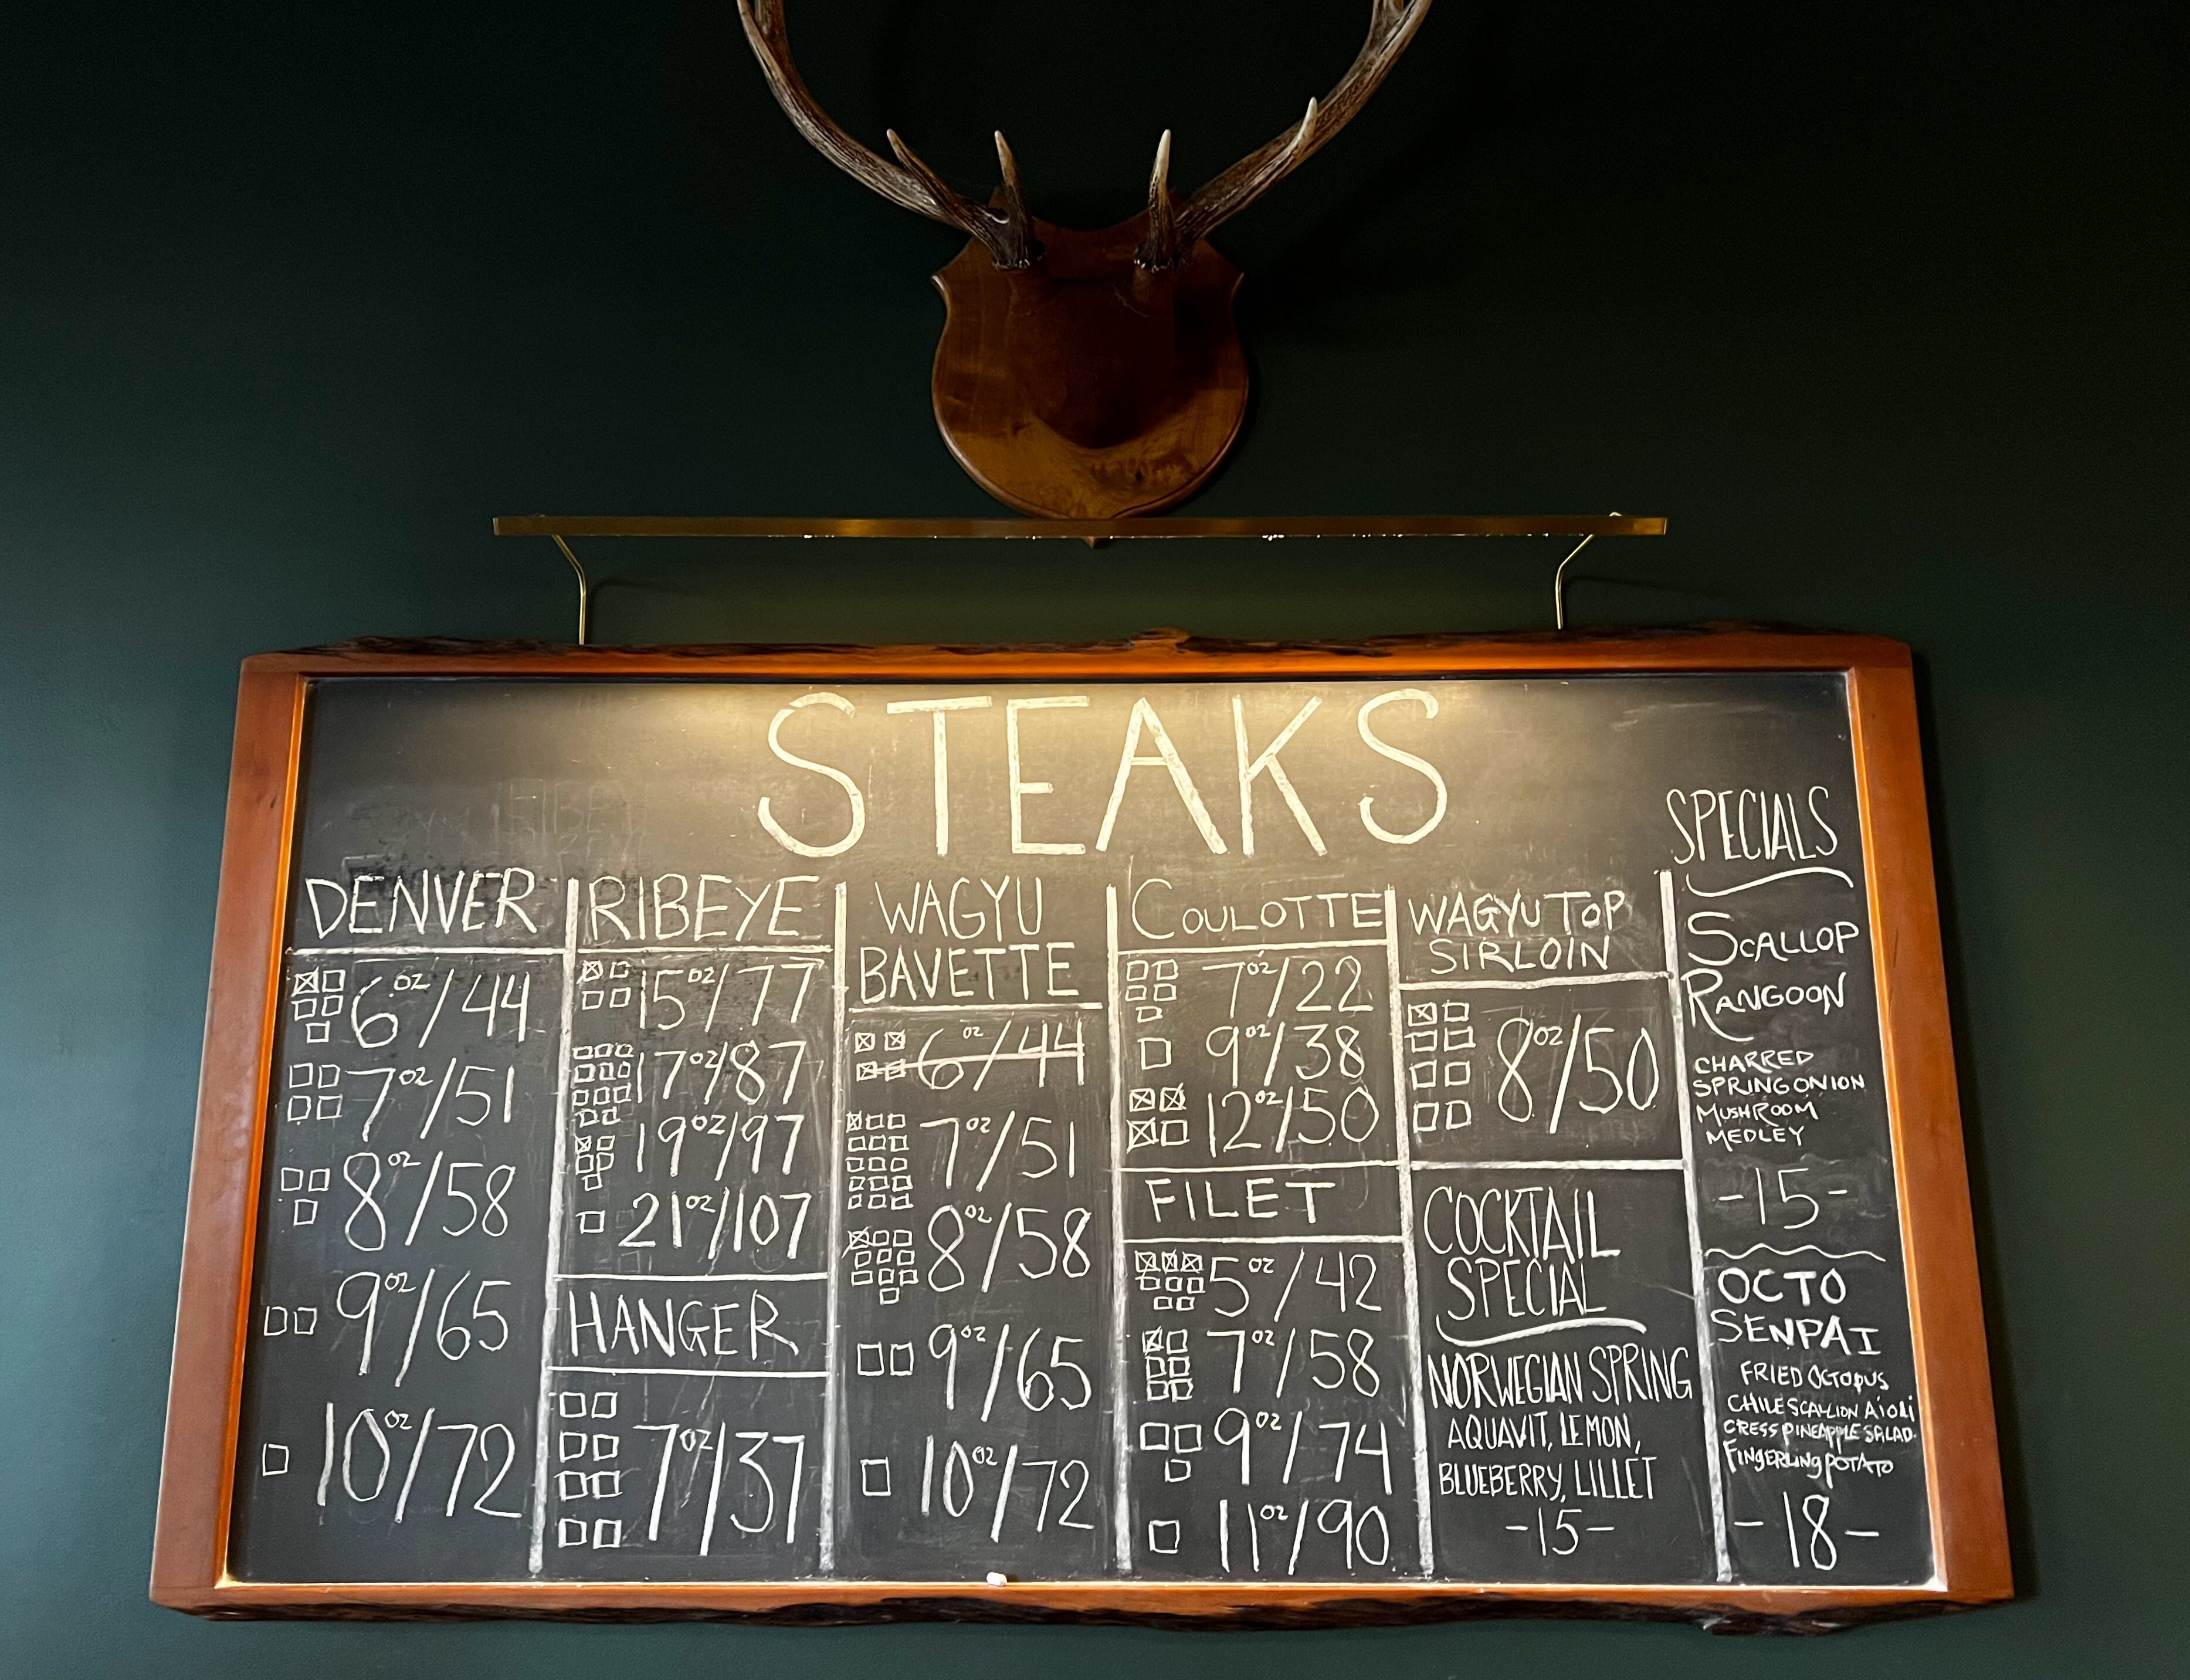 STEAKS
DENVER
6oz/44
7oz/51
8oz/58
9oz/65
10oz/72
RIBEYE
15oz/77
17oz/87
19oz/97
21oz/107
HANGER
7oz/37
WAGYU
BAVETTE
6oz/44
7oz/51
8oz/58
9oz/65
10oz/72
COULOTTE
7oz/22
9oz/38
12oz/50
FILET
5oz/42
7oz/58
9oz/74
11oz/90
WAGYU TOP
SIRLOIN
8oz/50
COCKTAIL
SPECIAL
NORWEGIAN SPRING
AQUAVIT, LEMON,
BLUEBERRY, LILLET
-15-
SPECIALS
SCALLOP
RANGOON
CHARRED
SPRING ONION
MUSHROOM
MEDLEY
-15-
OCTO
SENPAI
FRIED OCTOPUS
CHILE SCALLION AiOLi
CRESS PINEAPPLE SALAD
FINGERLING POTATO
-18-